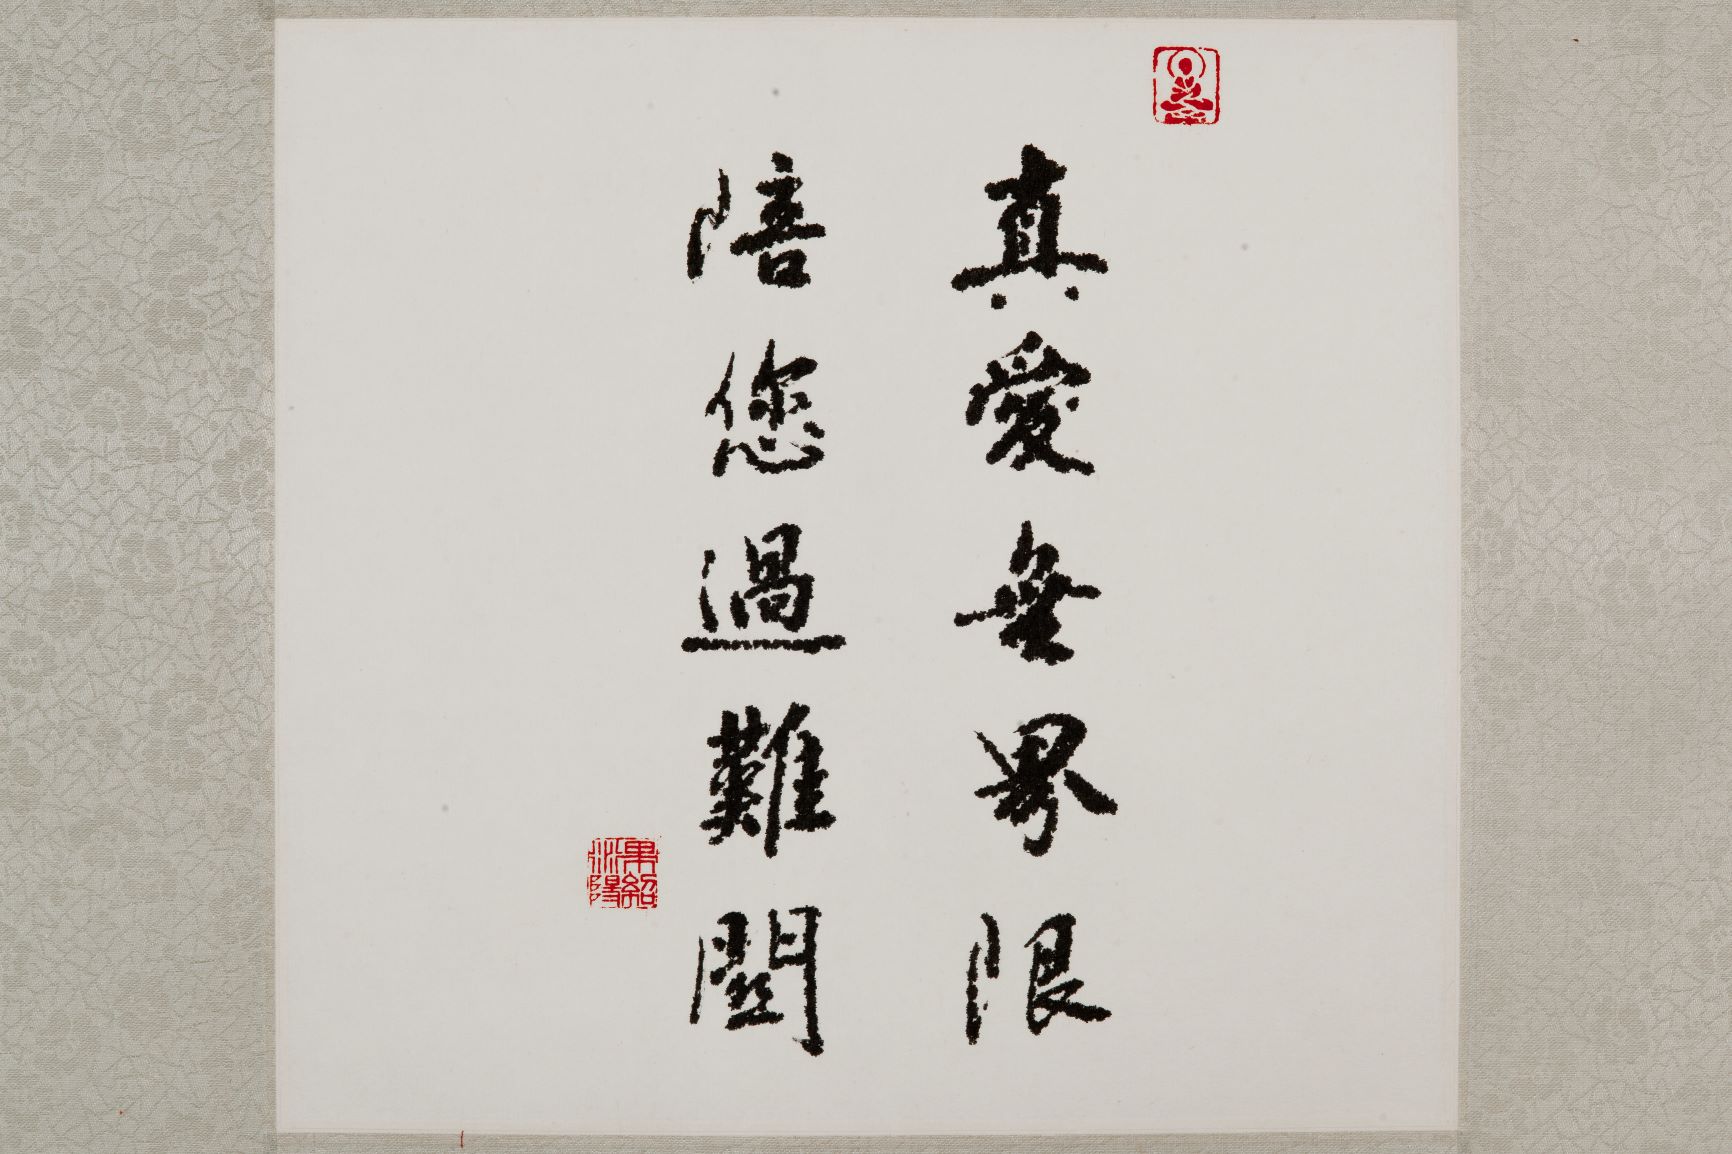 真愛無界限
陪您過難關